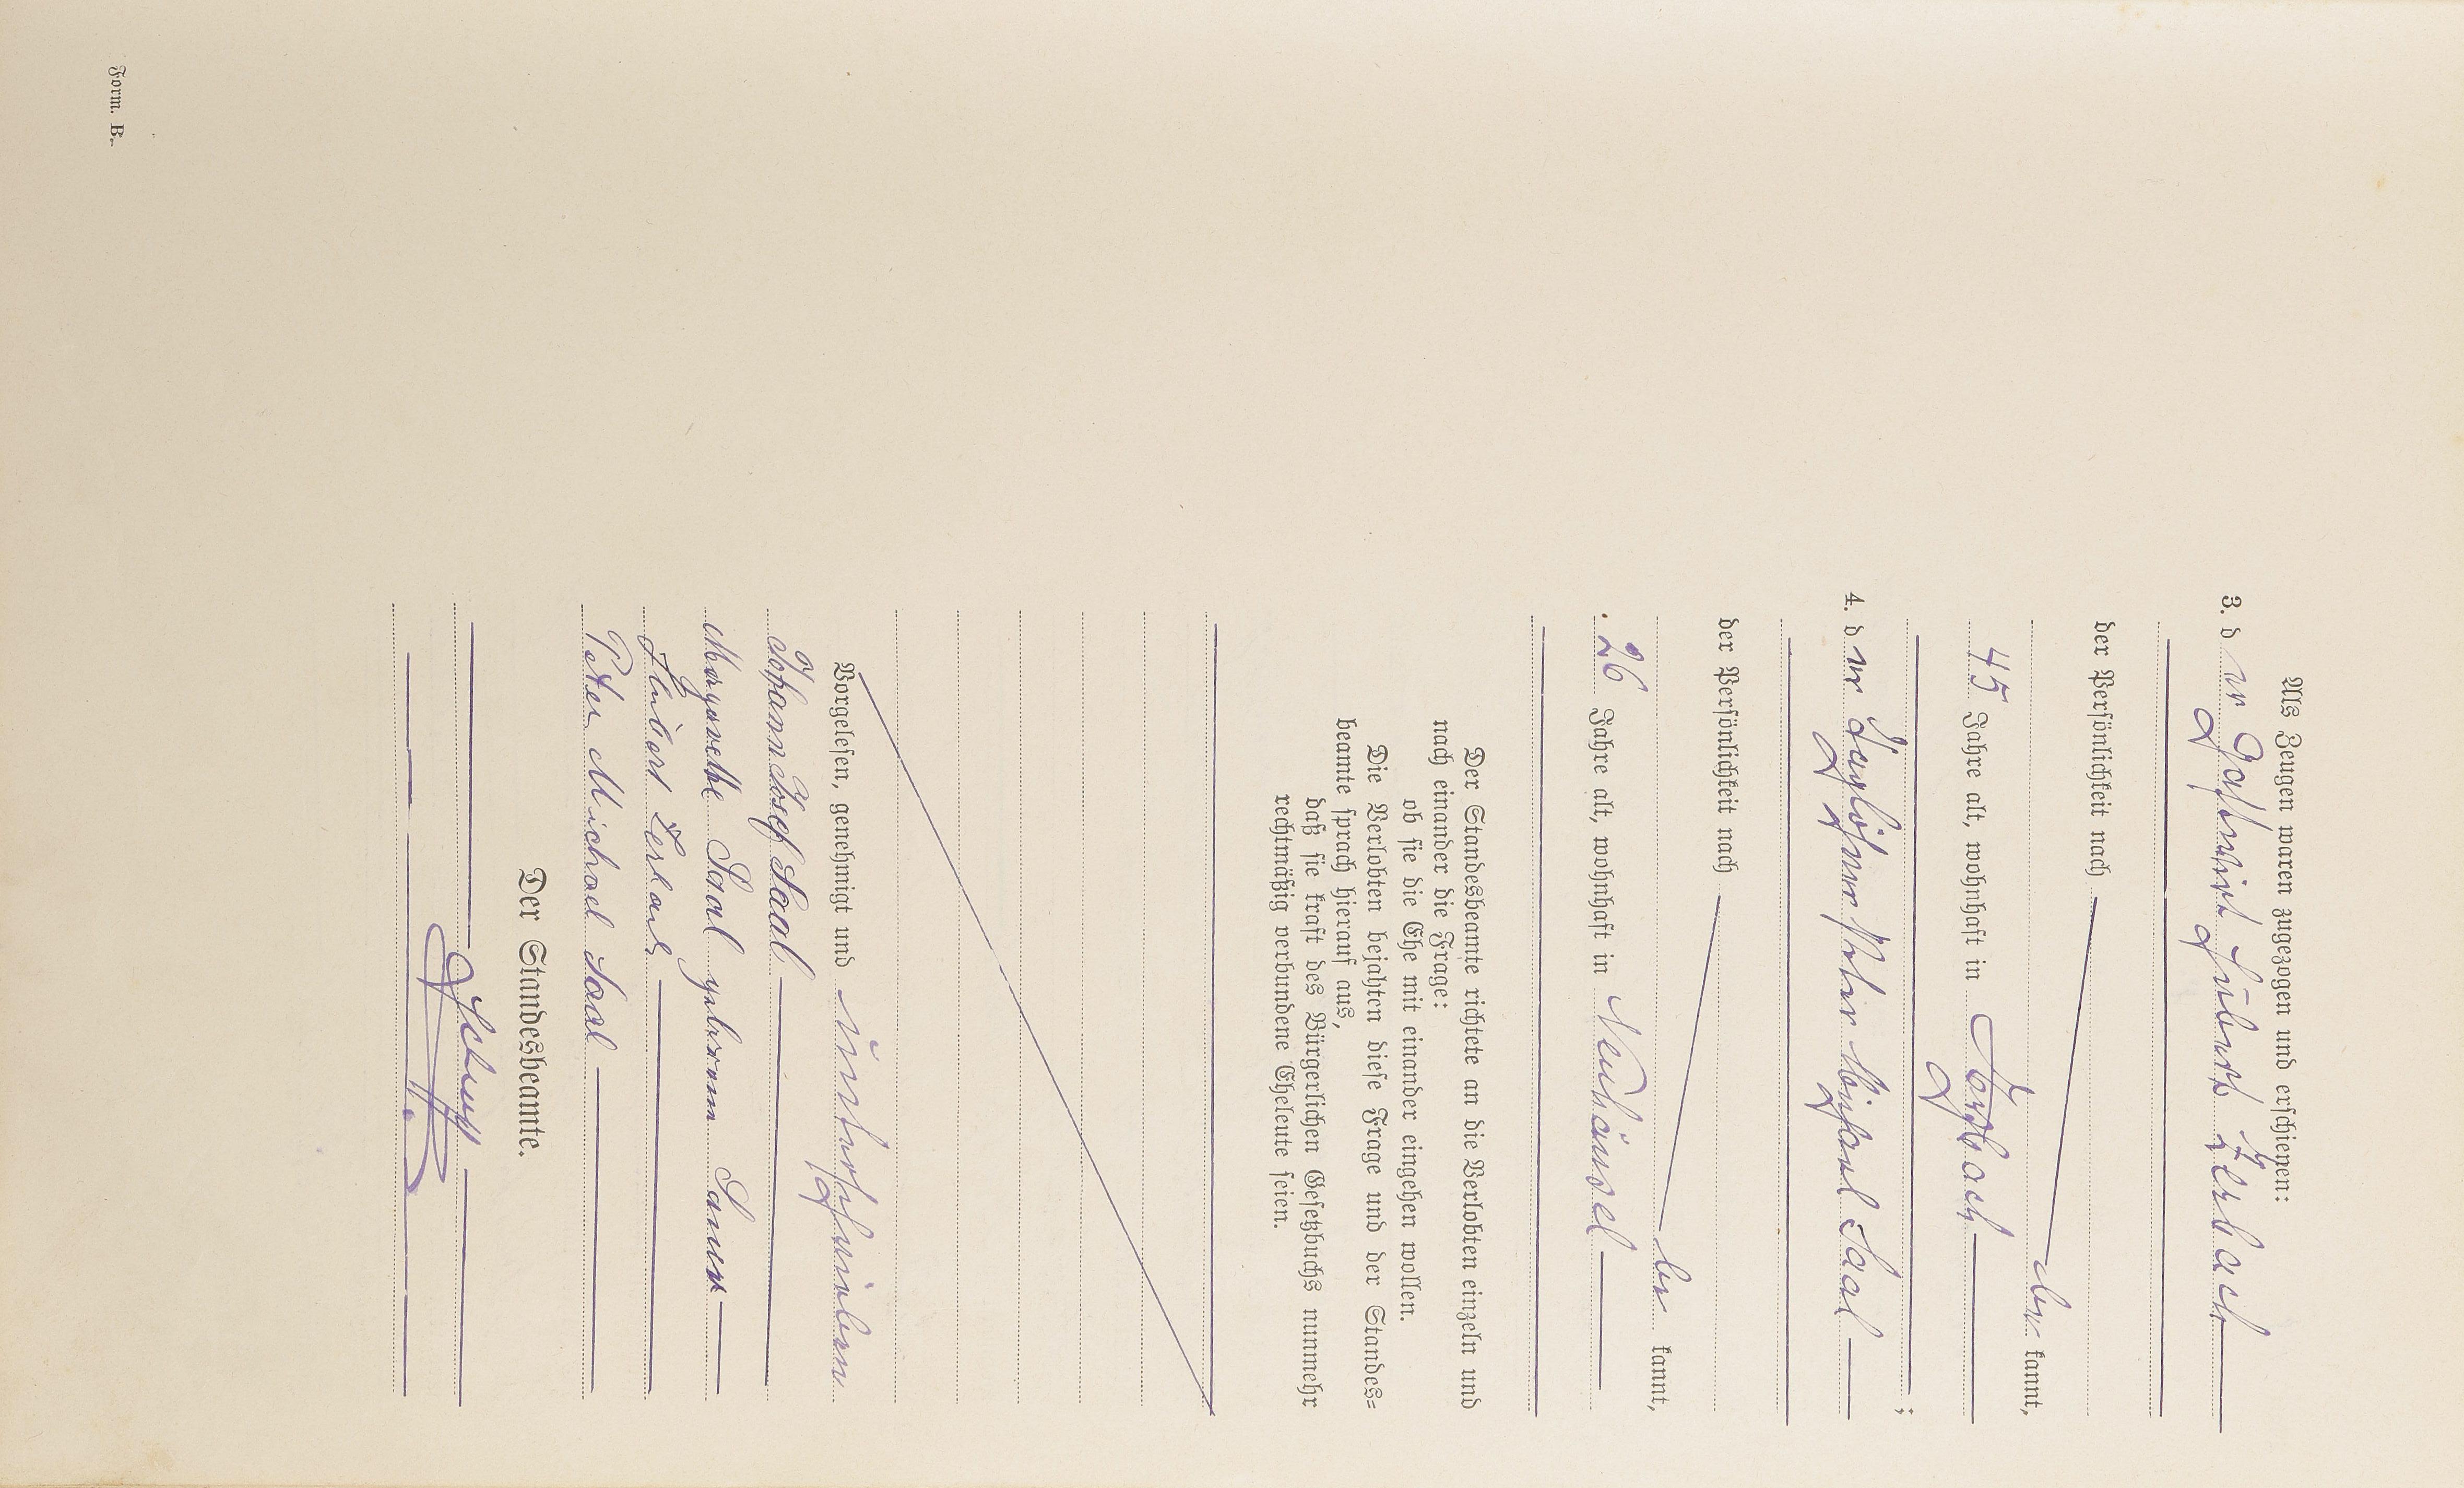 Als Zeugen waren zugezogen und erschienen:
3. d er Gastwirt Hubert Zerbach
der Persönlichkeit nach
be kannt,
45 Jahre alt, wohnhaft in
;
4. d er Taglöhner Peter Michael Saal
der Persönlichkeit nach
be kannt,
26 Jahre alt, wohnhaft in Neuhäusel
Der Standesbeamte richtete an die Verlobten einzeln und
nach einander die Frage:
ob sie die Ehe mit einander eingehen wollen.
Die Verlobten bejahten diese Frage und der Standes=
beamte sprach hierauf aus,
daß sie kraft des Bürgerlichen Gesetzbuchs nunmehr
rechtmäßig verbundene Eheleute seien.
Vorgelesen, genehmigt und unterschrieben
Johann Josef Saal
Margarethe Saal geborene Sauer
Hubert Zerbach
Peter Michael Saal
Der Standesbeamte.
Form. B.